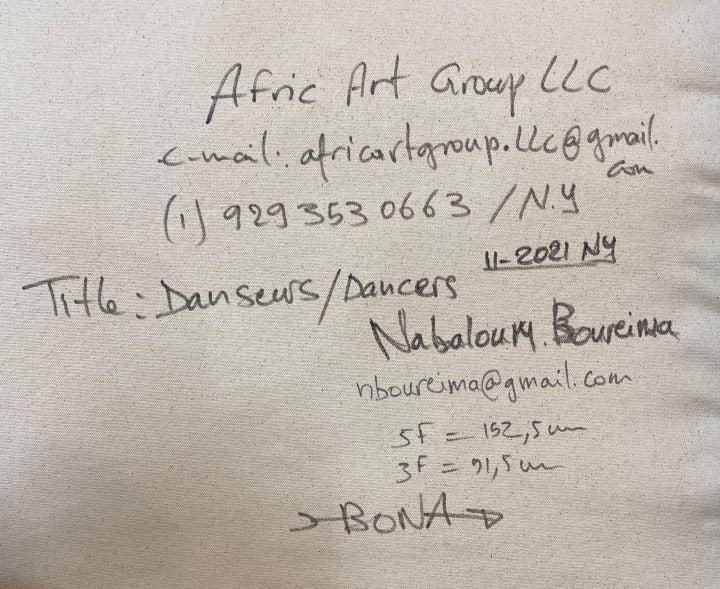 Afric Art Group LLC
e-mail: africartgroup.llc@gmail.
com
(1) 929 353 0663 / N.Y
11-2021 NY
Title: Danseurs/Dancers
Nabaloum. Boureima
nboureima@gmail.com
5F = 152,5 cm
3F = 91,5 cm
BONA